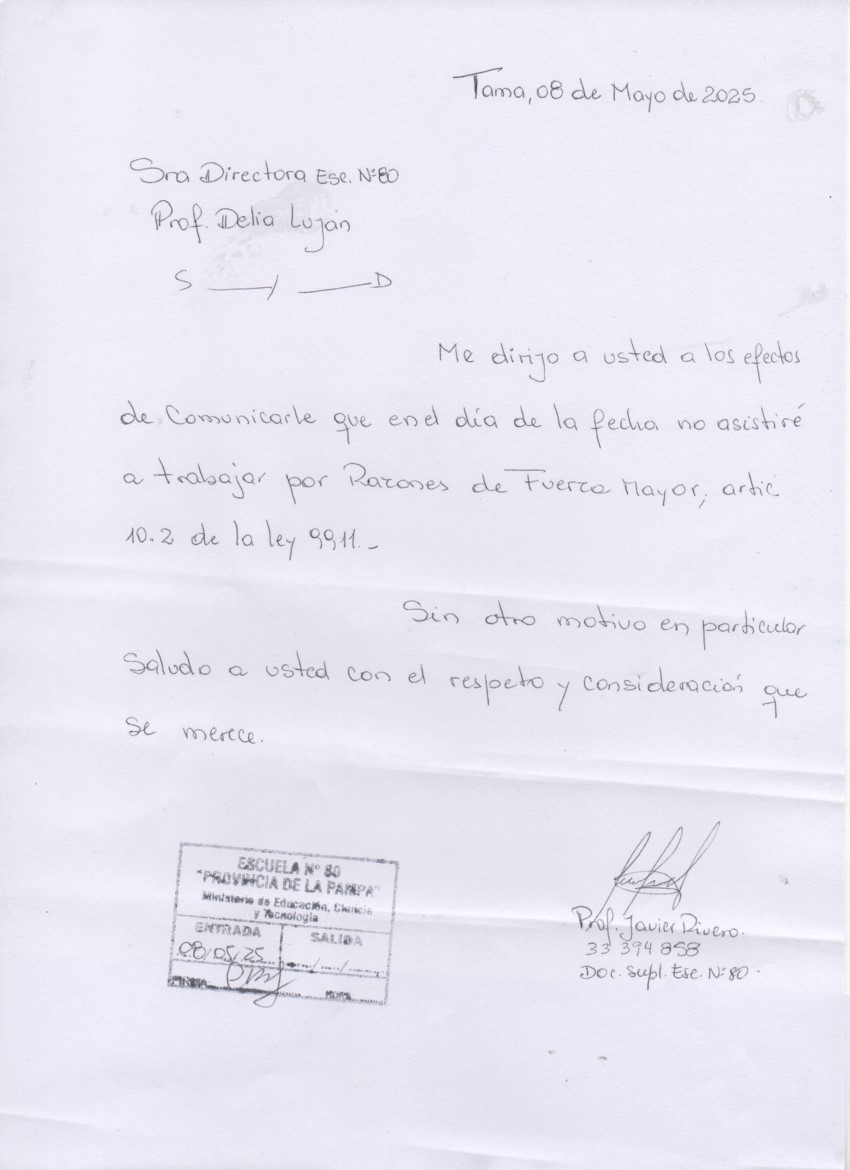 Tama, 08 de Mayo de 2025.
Sra Directora Esc. N:80
Prof. Delia Luján
S ___/ ___D
Me dirijo a usted a los efectos
de Comunicarle que en el día de la fecha no asistiré
a trabajar por Razones de Fuerza Mayor, artic
10.2 de la ley 9911.-
Sin otro motivo en particular
Saludo a usted con el respeto y consideración que
se merece.
ESCUELA Nº 80
"PROVINCIA DE LA PAMPA"
Ministerio de Educación, Ciencia
y Tecnología
ENTRADA SALIDA
08/05/25 .../.../...
FIRMA HORA
Prof. Javier Rivero.
33 394 858
Doc. Supl. Esc. N:80.